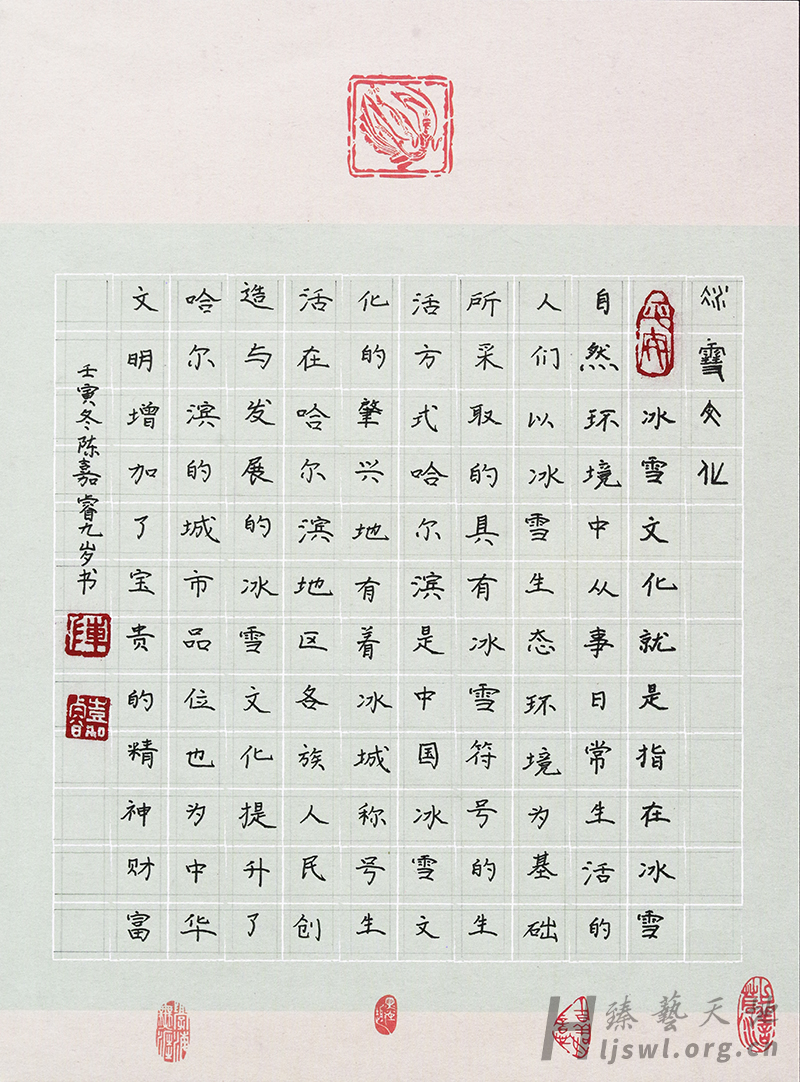 冰雪文化
冰雪文化就是指在冰雪
自然环境中从事日常生活的
人们以冰雪生态环境为基础
所采取的具有冰雪符号的生
活方式哈尔滨是中国冰雪文
化的肇兴地有着冰城称号生
活在哈尔滨地区各族人民创
造与发展的冰雪文化提升了
哈尔滨的城市品位也为中华
文明增加了宝贵的精神财富
壬寅冬陈嘉睿九岁书
平安
陈
嘉睿
臻艺天
ljswl.org.cn